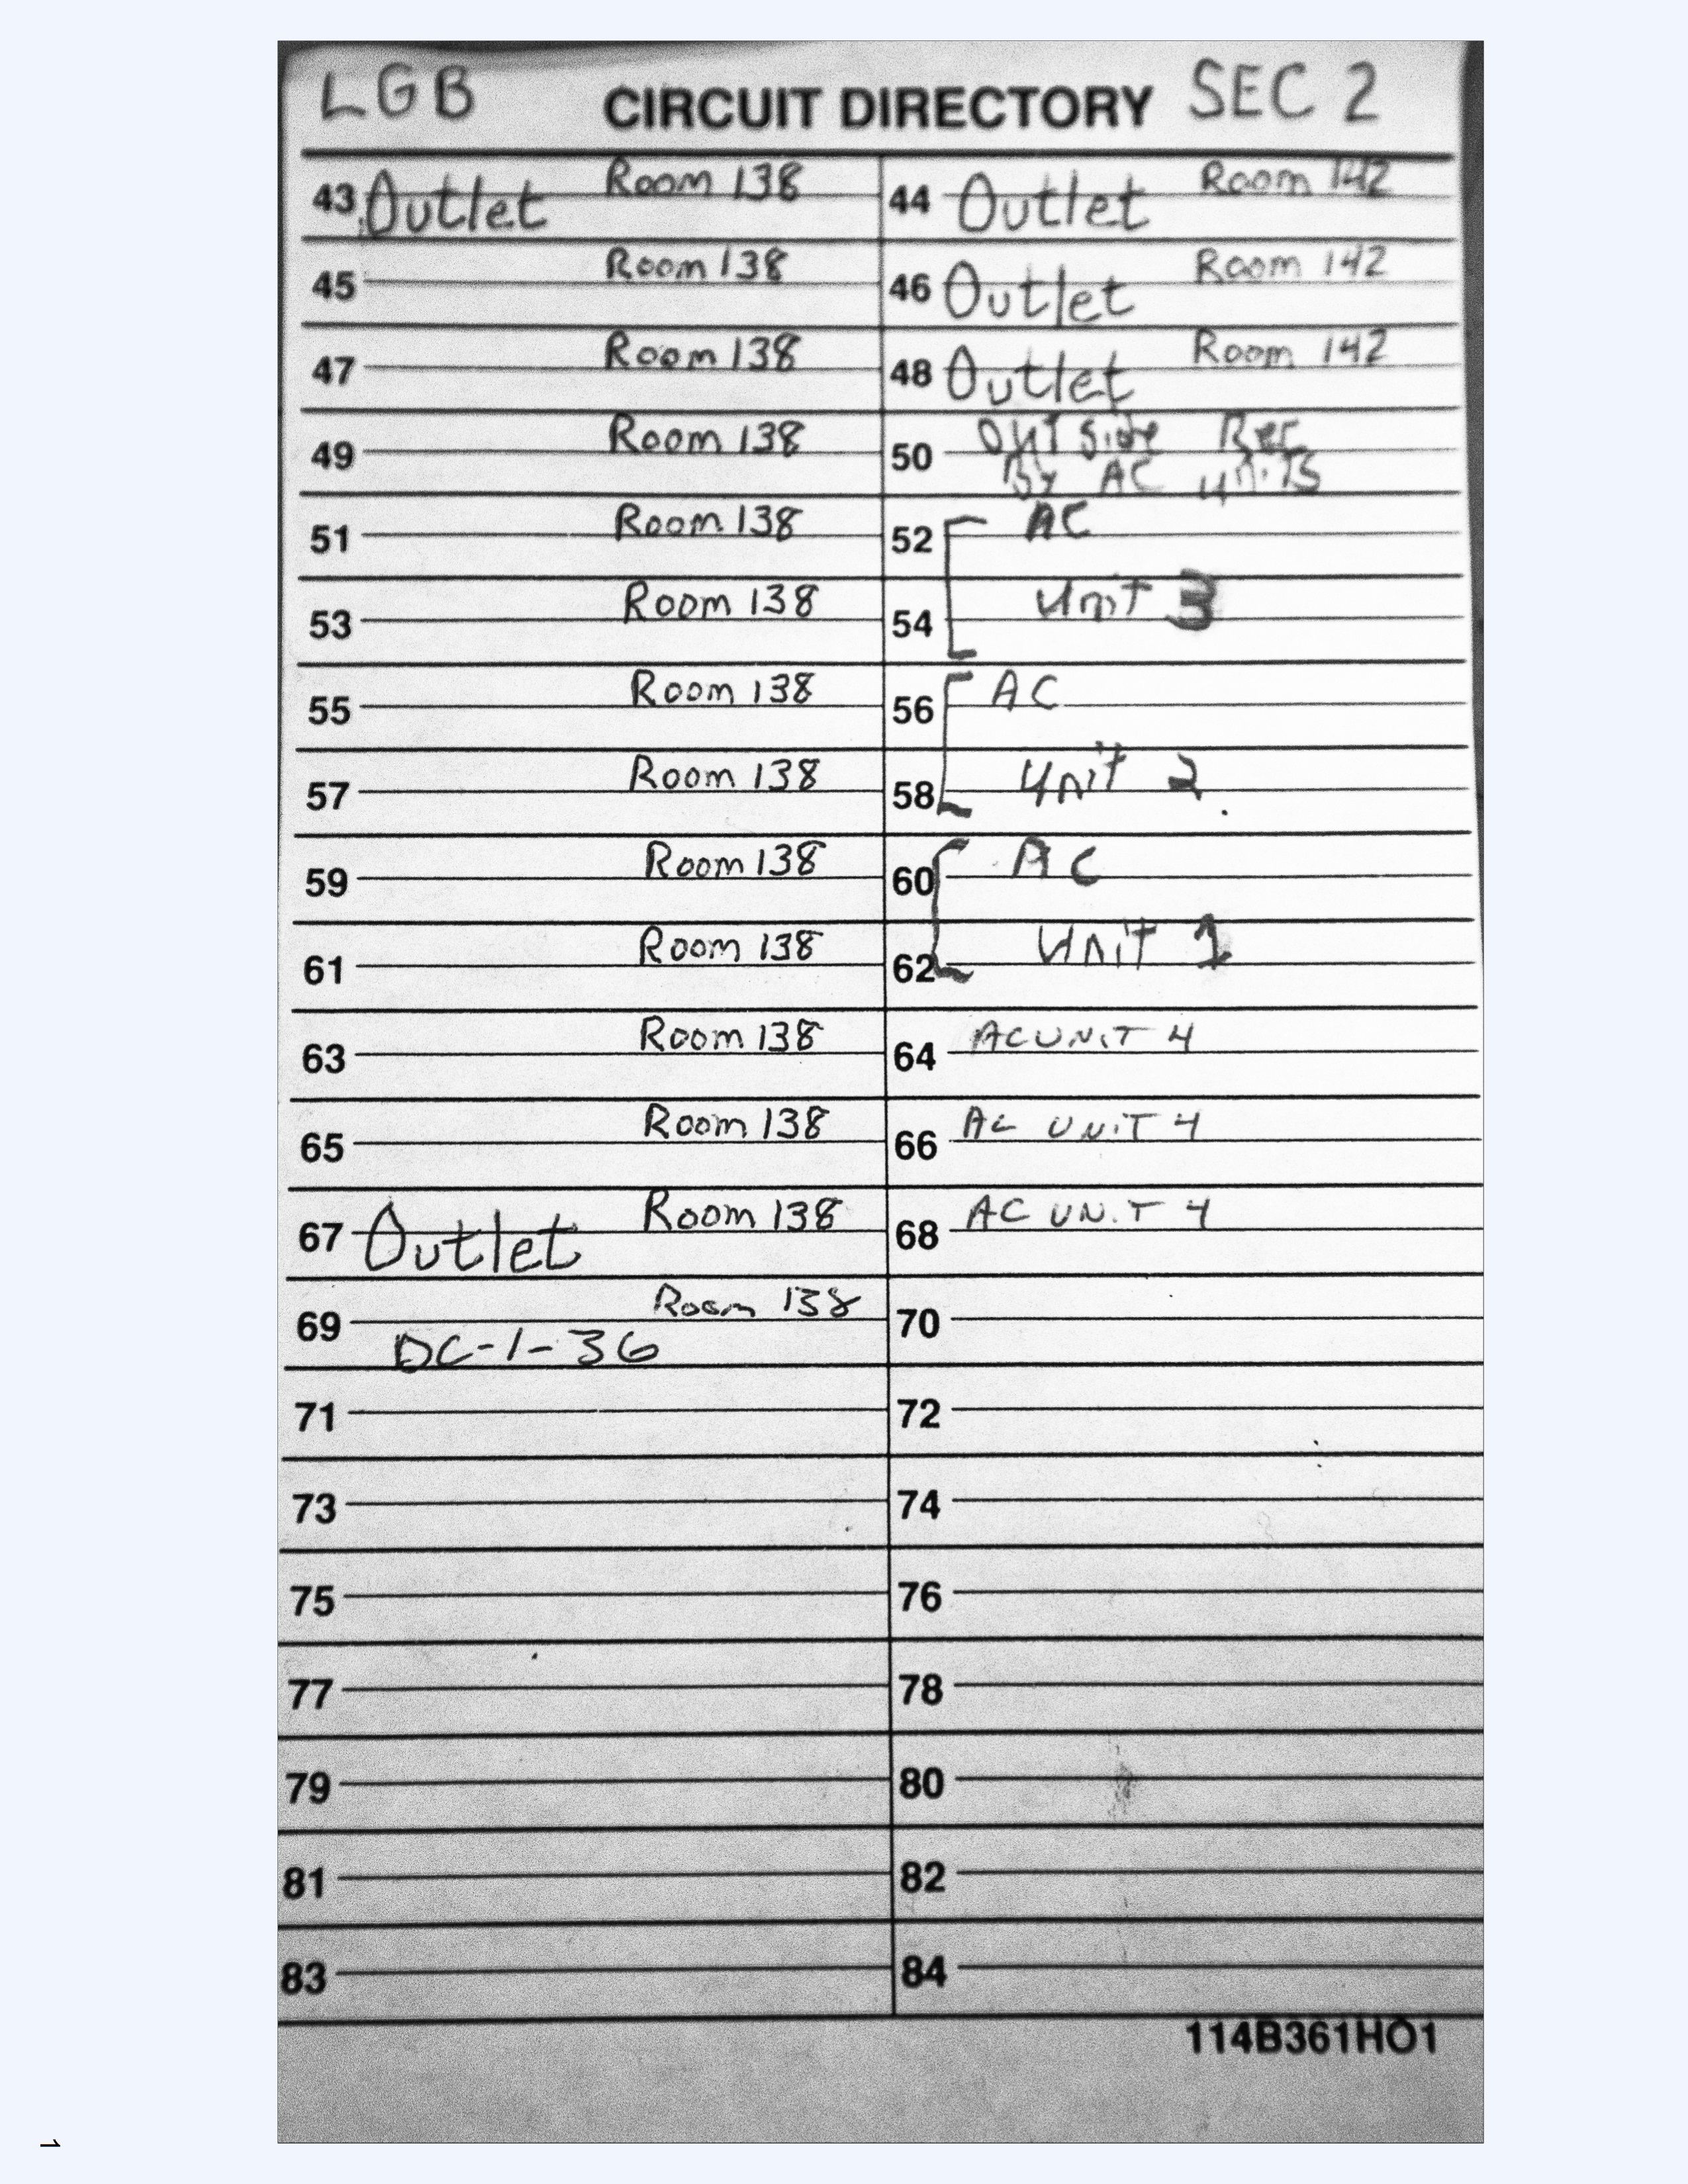 LGB CIRCUIT DIRECTORY SEC 2
43 Outlet Room 138 44 Outlet Room 142
45 Room 138 46 Outlet Room 142
47 Room 138 48 Outlet Room 142
49 Room 138 50 Outside Rec
By AC units
51 Room 138 52 AC
53 Room 138 54 Unit 3
55 Room 138 56 AC
57 Room 138 58 Unit 2
59 Room 138 60 AC
61 Room 138 62 Unit 1
63 Room 138 64 AC UNIT 4
65 Room 138 66 AC UNIT 4
67 Outlet Room 138 68 AC UNIT 4
69 Room 138 70
DC-1-36
71 72
73 74
75 76
77 78
79 80
81 82
83 84
114B361HO1
1